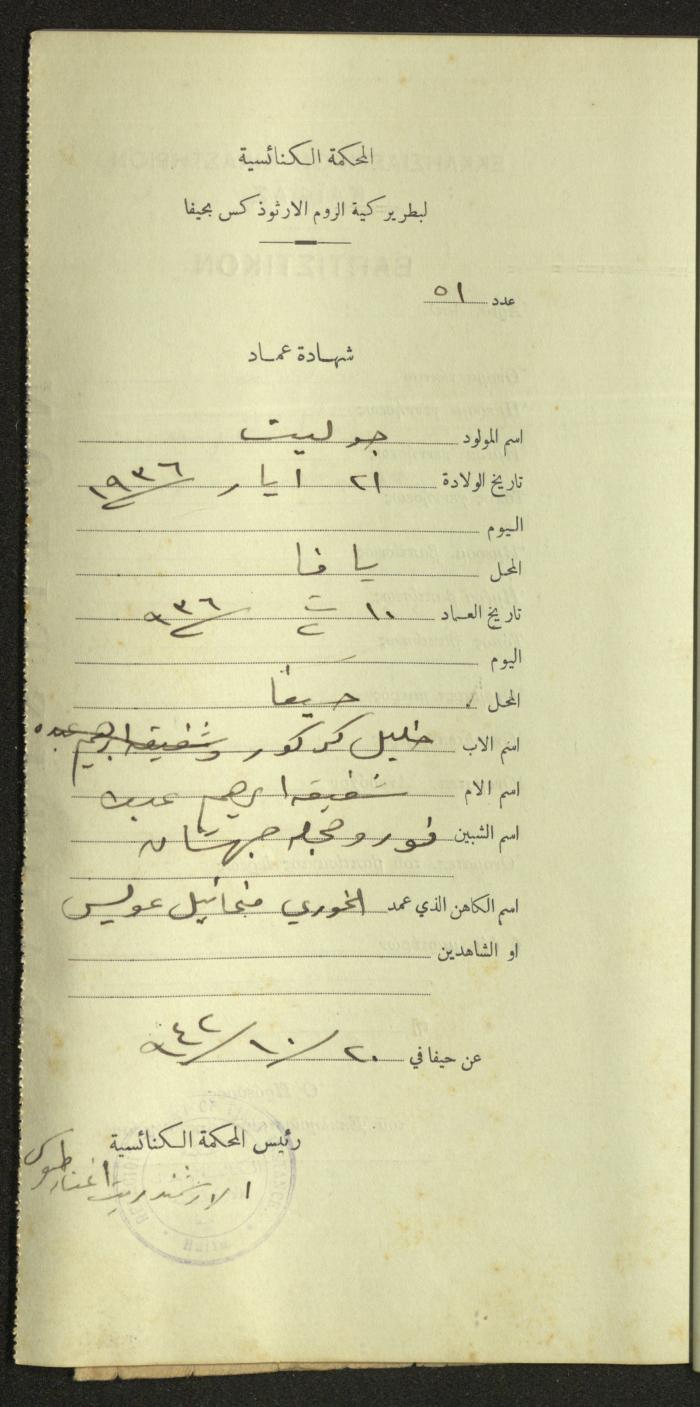 المحكمة الكنائسية
لبطريركية الروم الارثوذكس بحيفا
عدد ٥١
شهادة عماد
اسم المولود جوليت
تاريخ الولادة ٢١ ايار ١٩٣٦
اليوم
المحل يافا
تاريخ العماد ١٠ ت ٩٣٦
اليوم
المحل حيفا
اسم الاب خليل كركور وشفيقه ابرهيم عبده
اسم الام شفيقه ابرهيم عبده
اسم الشبين
اسم الكاهن الذي عمد الخوري مخائيل عويس
او الشاهدين
عن حيفا في ٢٠/١٠/٩٤٢
رئيس المحكمة الكنائسية
الارشمندريت